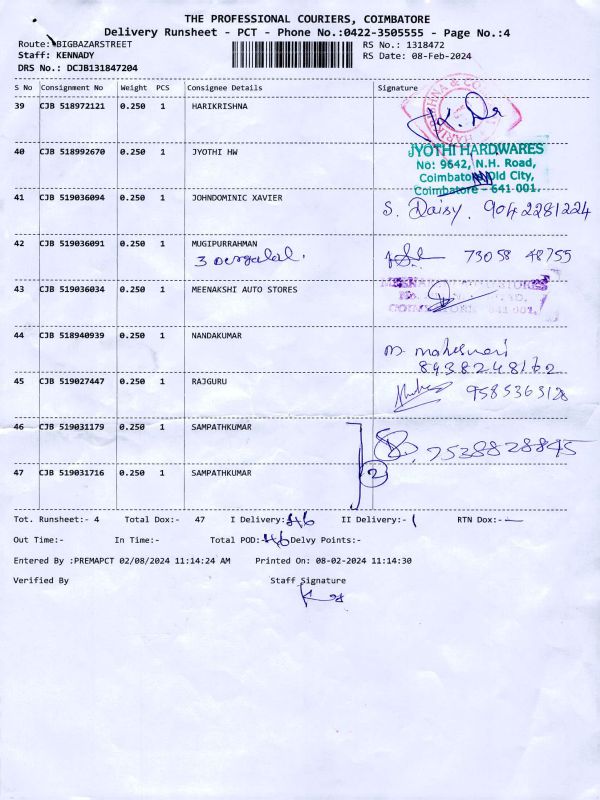 THE PROFESSIONAL COURIERS, COIMBATORE
Delivery Runsheet - PCT - Phone No.:0422-3505555 - Page No.:4
Route: BIGBAZARSTREET
RS No.: 1318472
Staff: KENNADY
RS Date: 08-Feb-2024
DRS No.: DCJB131847204
S No Consignment No Weight PCS Consignee Details Signature
39 CJB 518972121 0.250 1 HARIKRISHNA
40 CJB 518992670 0.250 1 JYOTHI HW
JYOTHI HARDWARES
No: 9642, N.H. Road,
Coimbatore Old City,
Coimbatore - 641 001.
41 CJB 519036094 0.250 1 JOHNDOMINIC XAVIER S. Daisy. 9042281224
42 CJB 519036091 0.250 1 MUGIPURRAHMAN
73058 48755
43 CJB 519036034 0.250 1 MEENAKSHI AUTO STORES
44 CJB 518940939 0.250 1 NANDAKUMAR
M. Maheswari
8938248162
45 CJB 519027447 0.250 1 RAJGURU 9585363128
46 CJB 519031179 0.250 1 SAMPATHKUMAR
7538828845
47 CJB 519031716 0.250 1 SAMPATHKUMAR 2
Tot. Runsheet:- 4 Total Dox:- 47 I Delivery:- 46 II Delivery:- 1 RTN Dox:- -
Out Time:- In Time:- Total POD:- 46 Delvy Points:-
Entered By :PREMAPCT 02/08/2024 11:14:24 AM Printed On: 08-02-2024 11:14:30
Verified By Staff Signature